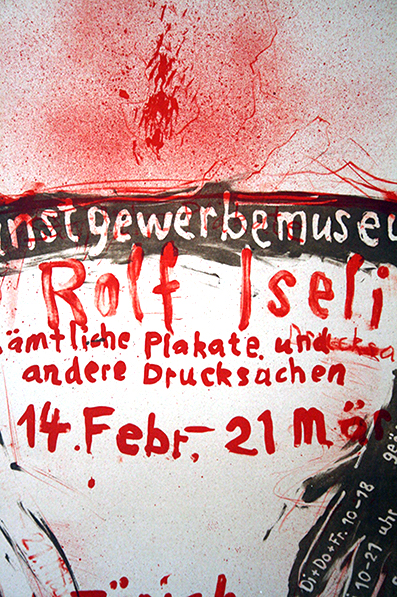 unstgewerbemuseu
Rolf Iseli
sämtliche Plakate und
andere Drucksachen
14. Febr. – 21 Mär
Di+Do+Fr. 10-18
10-21 Uhr
Zürich